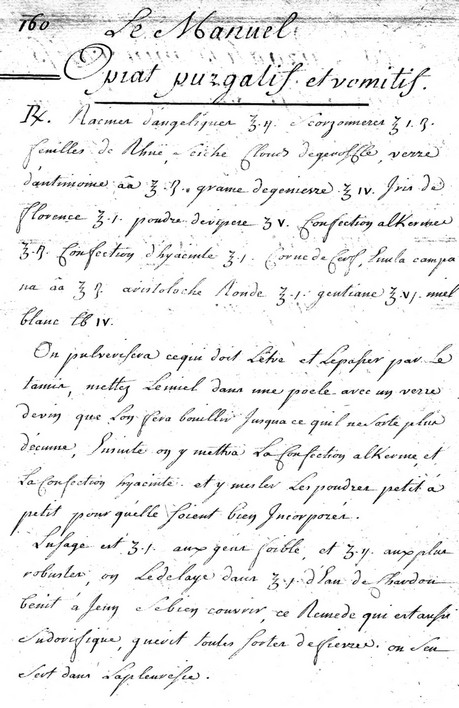 160
Le Manuel
Opiat purgatif et vomitif.
℞. Racines d'angeliques ʒ. ij. Scorzonneres ʒ 1. ß.
feuilles de Rhue seiche Cloux de geroffle verre
d'antimoine ãã ʒ. ß. graine de genievre ʒ IV. Iris de
florence ʒ. 1. poudre de vipere ʒ V. Confection alKerme
ʒ. ß. Confection d'hyacinte ʒ. 1. Corne de Cerf, Enula campa
na ãã ʒ ß. aristoloche Ronde ʒ. 1. gentiane ʒ. vj. miel
blanc lb IV.
On pulverisera ce qui doit L'etre et Le passer par Le
tamis, mettez Le miel dans une poele avec un verre
de vin que L'on fera bouillir Jusqua ce qu'il ne sorte plus
d'ecume, Ensuite on y mettra La Confection alKerme, et
La Confection hyacinte et y mesler Les poudres petit a
petit pour qu'elle soient bien Incorporés.
L'usage est ʒ. 1. aux gens foible, et ʒ. ij. aux plus
robustes, on Le delaye dans ʒ. 1. d'Eau de Chardon
benit à Jeun se bien couvrir, ce Remede qui est aussi
Sudorifique, guerit toutes sortes de fievre. on s'en
sert dans La pleuresie.